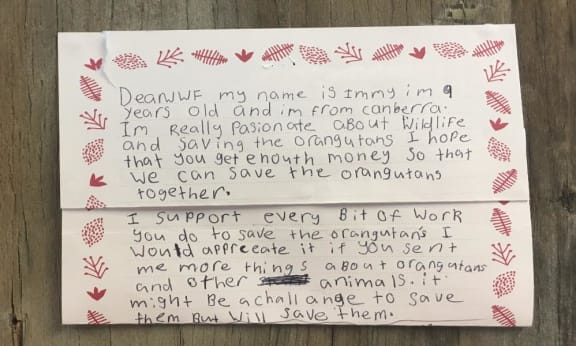 DearWWF my name is Immy im 9
years old and im from canberra.
Im Really Pasionate about Wildlife
and saving the orangutans I hope
that you get enouth money so that
we can save the orangutans
together.
I support every Bit of Work
you do to save the orangutans I
would apprecate it if you sent
me more things about orangutans
and other animals. it
might Be a challange to save
them But will save them.